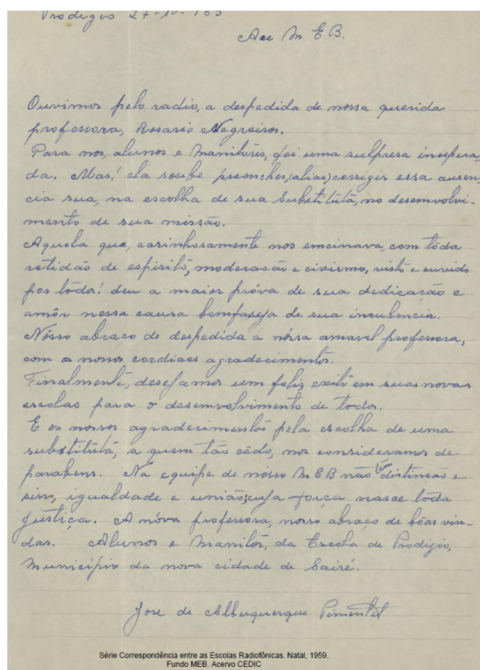 Prodigio 27-10-163
Aeu M E B.
Ouvimos pelo radio, a despedida de nossa querida
professora, Rosario Negreiros.
Para nos, alunos e Manitôres, foi uma sulpresa inespera,
da. Mas! ela soube preencher, (alias) corregir essa ausen,
cia sua, na escolha de sua Substitutá, no desemvolvi-
mento de sua missão.
Aquela que, carinhosamente nos emcinava, com tôda
retidão de espirito, moderação e civismo, visto e ouvido
por tôdos! deu a maior próva de sua dedicação e
amôr nessa causa bemfaseja de sua incubencia.
Nósso abraço de despedida a nóssa amavel professora,
com os nossos cordiaes agradecimentos.
Finalmente, desejamos um feliz exitó em suas novas
escolas para o desemvolvimento de todos.
E os nossos agradecimentos pela escolha de uma
substitutá, a quem tão cêdo, nos consideramos de
parabens. Na equipe de nósso M E B não tem distinção e
sim, igualdade e união, cuja força nasce toda
justiça. A nóva professora, nosso abraço de bôas vin-
das. Alunos e Manitôr, da Escola de Prodigio,
Municipio da nova cidade de Sairé.
Jose de Albuquerque Pimentel
Série Correspondência entre as Escolas Radiofônicas. Natal, 1959.
Fundo MEB. Acervo CEDIC